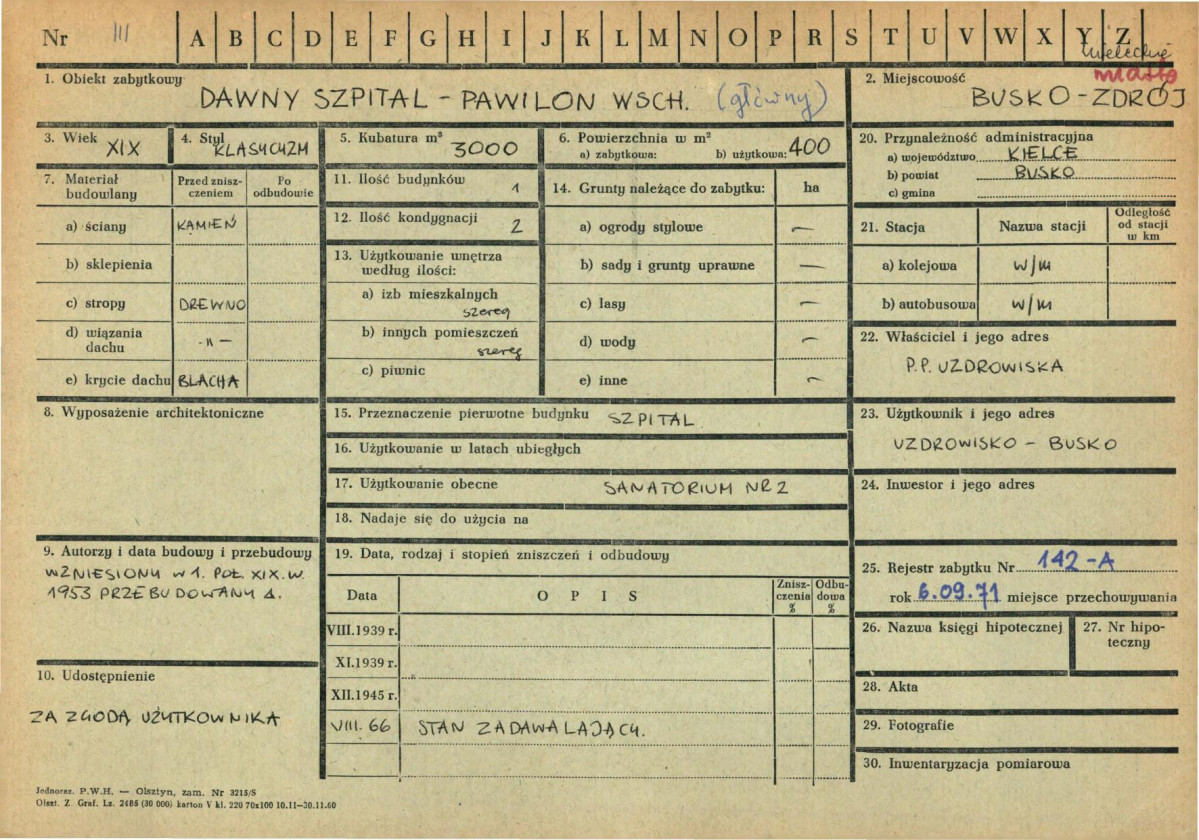 Nr III A B C D E F G H I J K L M N O P R S T U V W X Y Z
miasto
1. Obiekt zabytkowy
DAWNY SZPITAL – PAWILON WSCH. (główny)
2. Miejscowość
BUSKO-ZDRÓJ
3. Wiek XIX
4. Styl KLASYCYZM
5. Kubatura m³ 3000
6. Powierzchnia w m²
a) zabytkowa: b) użytkowa: 400
20. Przynależność administracyjna
a) województwo KIELCE
b) powiat BUSKO
c) gmina
7. Materiał budowlany
Przed zniszczeniem
Po odbudowie
a) ściany KAMIEŃ
b) sklepienia
c) stropy DREWNO
d) wiązania dachu -"-
e) krycie dachu BLACHA
11. Ilość budynków 1
12. Ilość kondygnacji 2
13. Użytkowanie wnętrza według ilości:
a) izb mieszkalnych szereg
b) innych pomieszczeń szereg
c) piwnic
14. Grunty należące do zabytku: ha
a) ogrody stylowe —
b) sady i grunty uprawne —
c) lasy —
d) wody —
e) inne —
21. Stacja Nazwa stacji Odległość od stacji w km
a) kolejowa w/m
b) autobusowa w/m
22. Właściciel i jego adres
P.P. UZDROWISKA
8. Wyposażenie architektoniczne
15. Przeznaczenie pierwotne budynku SZPITAL
16. Użytkowanie w latach ubiegłych
17. Użytkowanie obecne SANATORIUM NR 2
18. Nadaje się do użycia na
23. Użytkownik i jego adres
UZDROWISKO – BUSKO
24. Inwestor i jego adres
9. Autorzy i data budowy i przebudowy
WZNIESIONY W 1. POŁ. XIX. W.
1953 PRZEBUDOWANY
19. Data, rodzaj i stopień zniszczeń i odbudowy
Data OPIS Zniszczenia % Odbudowa %
VIII.1939 r.
XI.1939 r.
XII.1945 r.
VIII. 66 STAN ZADAWALAJĄCY.
25. Rejestr zabytku Nr 142-A
rok 6.09.71 miejsce przechowywania
26. Nazwa księgi hipotecznej
27. Nr hipoteczny
10. Udostępnienie
ZA ZGODĄ UŻYTKOWNIKA
28. Akta
29. Fotografie
30. Inwentaryzacja pomiarowa
Jednoraz. P.W.H. — Olsztyn, zam. Nr 3215/S
Olszt. Z. Graf. Lz. 2485 (30 000) karton V kl. 220 70x100 10.11—30.11.60